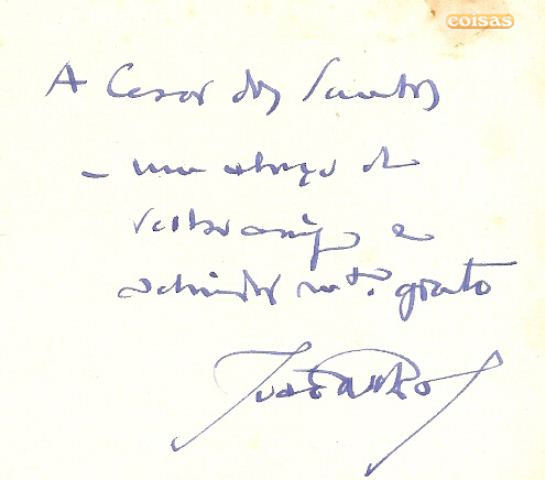 coisas
A Cesar dos Santos
– um abraço de
velho amigo e
admirador mto. grato